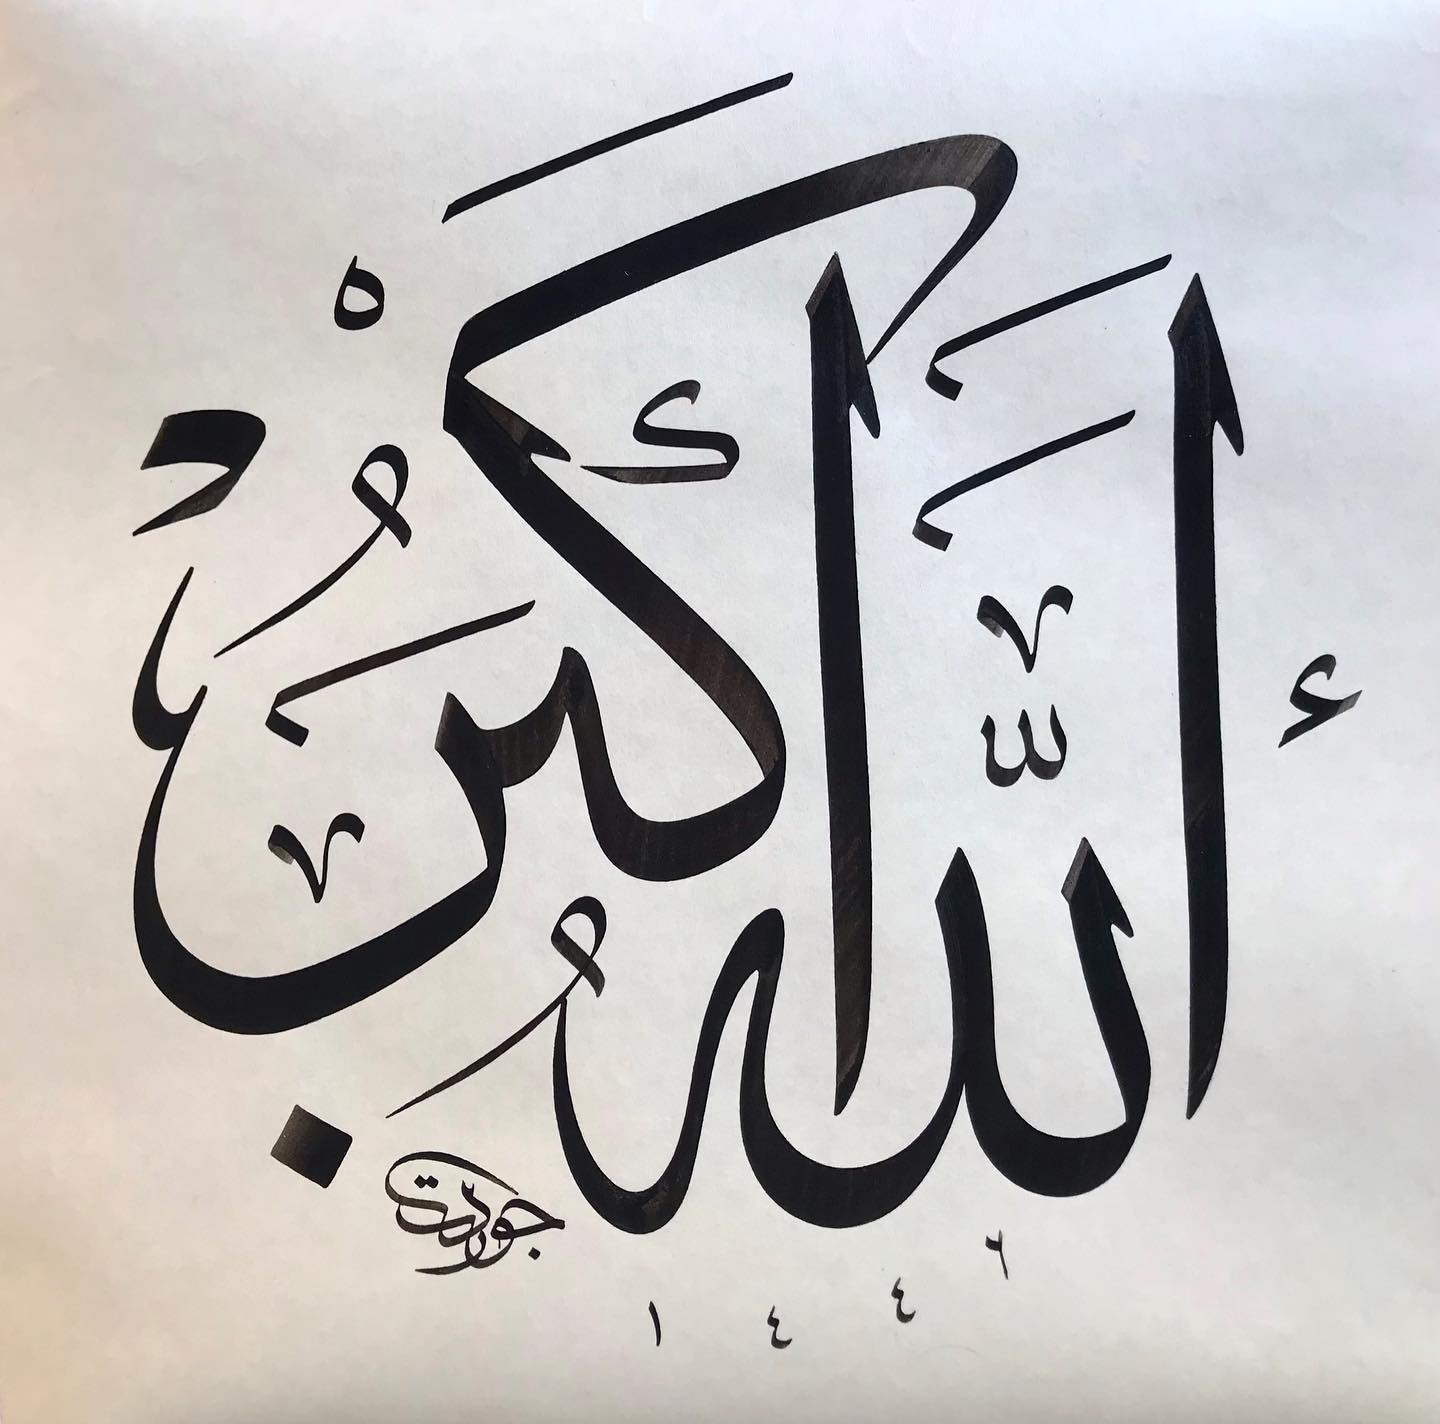 اَللّٰهُ اَكْبَرُ
جودت
١٤٤٦